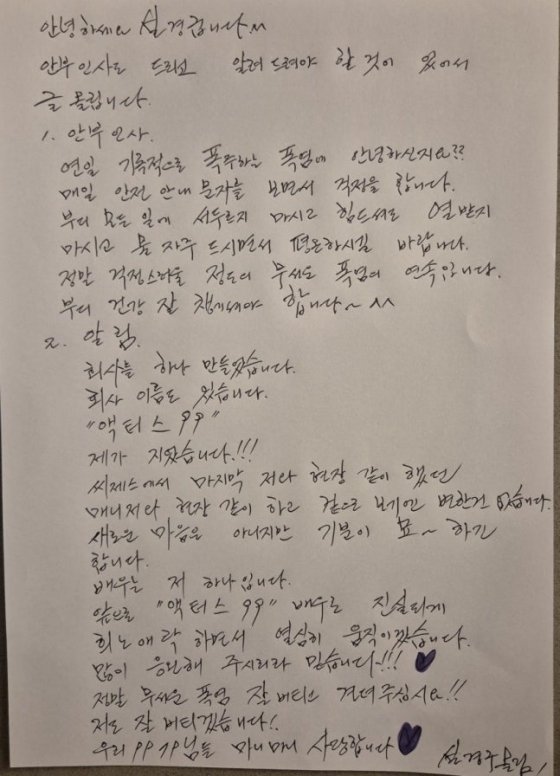 안녕하세요 설경굽니다^^
안부인사도 드리고 알려 드려야 할 것이 있어서
글 올립니다.
1. 안부인사.
연일 기록적으로 폭주하는 폭염에 안녕하신지요??
매일 안전 안내 문자를 보면서 걱정을 합니다.
부디 모든 일에 서두르지 마시고 힘드셔도 열받지
마시고 물 자주 드시면서 평온하시길 바랍니다.
정말 걱정스러울 정도의 무서운 폭염의 연속입니다.
부디 건강 잘 챙기셔야 합니다~^^
2. 알림.
회사를 하나 만들었습니다.
회사 이름도 있습니다.
"액터스99"
제가 지었습니다!!!
씨제스에서 마지막 저와 현장 같이 했던
매니저와 현장 같이 하고 겉으로 보기엔 변한건 없습니다.
새로운 마음은 아니지만 기분이 묘~ 하긴
합니다.
배우는 저 하나입니다.
앞으로 "액터스99" 배우로 진실되게
희노애락 하면서 열심히 움직이겠습니다.
많이 응원해 주시리라 믿습니다~!!!
정말 무서운 폭염 잘 버티고 견뎌주십시요!!
저도 잘 버티겠습니다!
우리 9979님들 마니마니 사랑합니다
설경구올림.